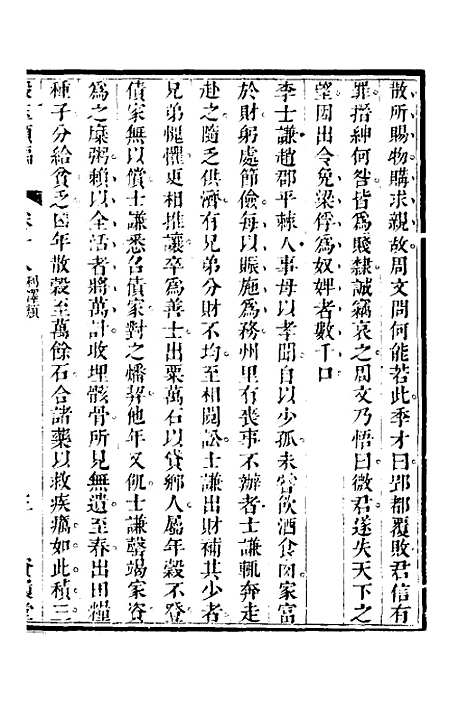 散所賜物購求親故周文問何能若此季才曰郢都覆敗君信有
罪搢紳何咎皆爲賤隸誠竊哀之周文乃悟曰微君遂失天下之
望因出令免梁俘爲奴婢者數千口
李士謙趙郡平棘人事母以孝聞自以少孤未嘗飲酒食肉家富
於財躬處節儉每以賑施爲務州里有喪事不辦者士謙輒奔走
赴之隨乏供濟有兄弟分財不均至相鬩訟士謙出財補其少者
兄弟愧懼更相推讓卒爲善士出粟萬石以貸鄉人屬年穀不登
債家無以償士謙悉召債家對之燔契他年又飢士謙罄竭家資
爲之糜粥賴以全活者將萬計收埋骸骨所見無遺至春出田糧
種子分給貧乏凶年散穀至萬餘石合諸藥以救疾癘如此積三
類編
卷十八
利澤類
三